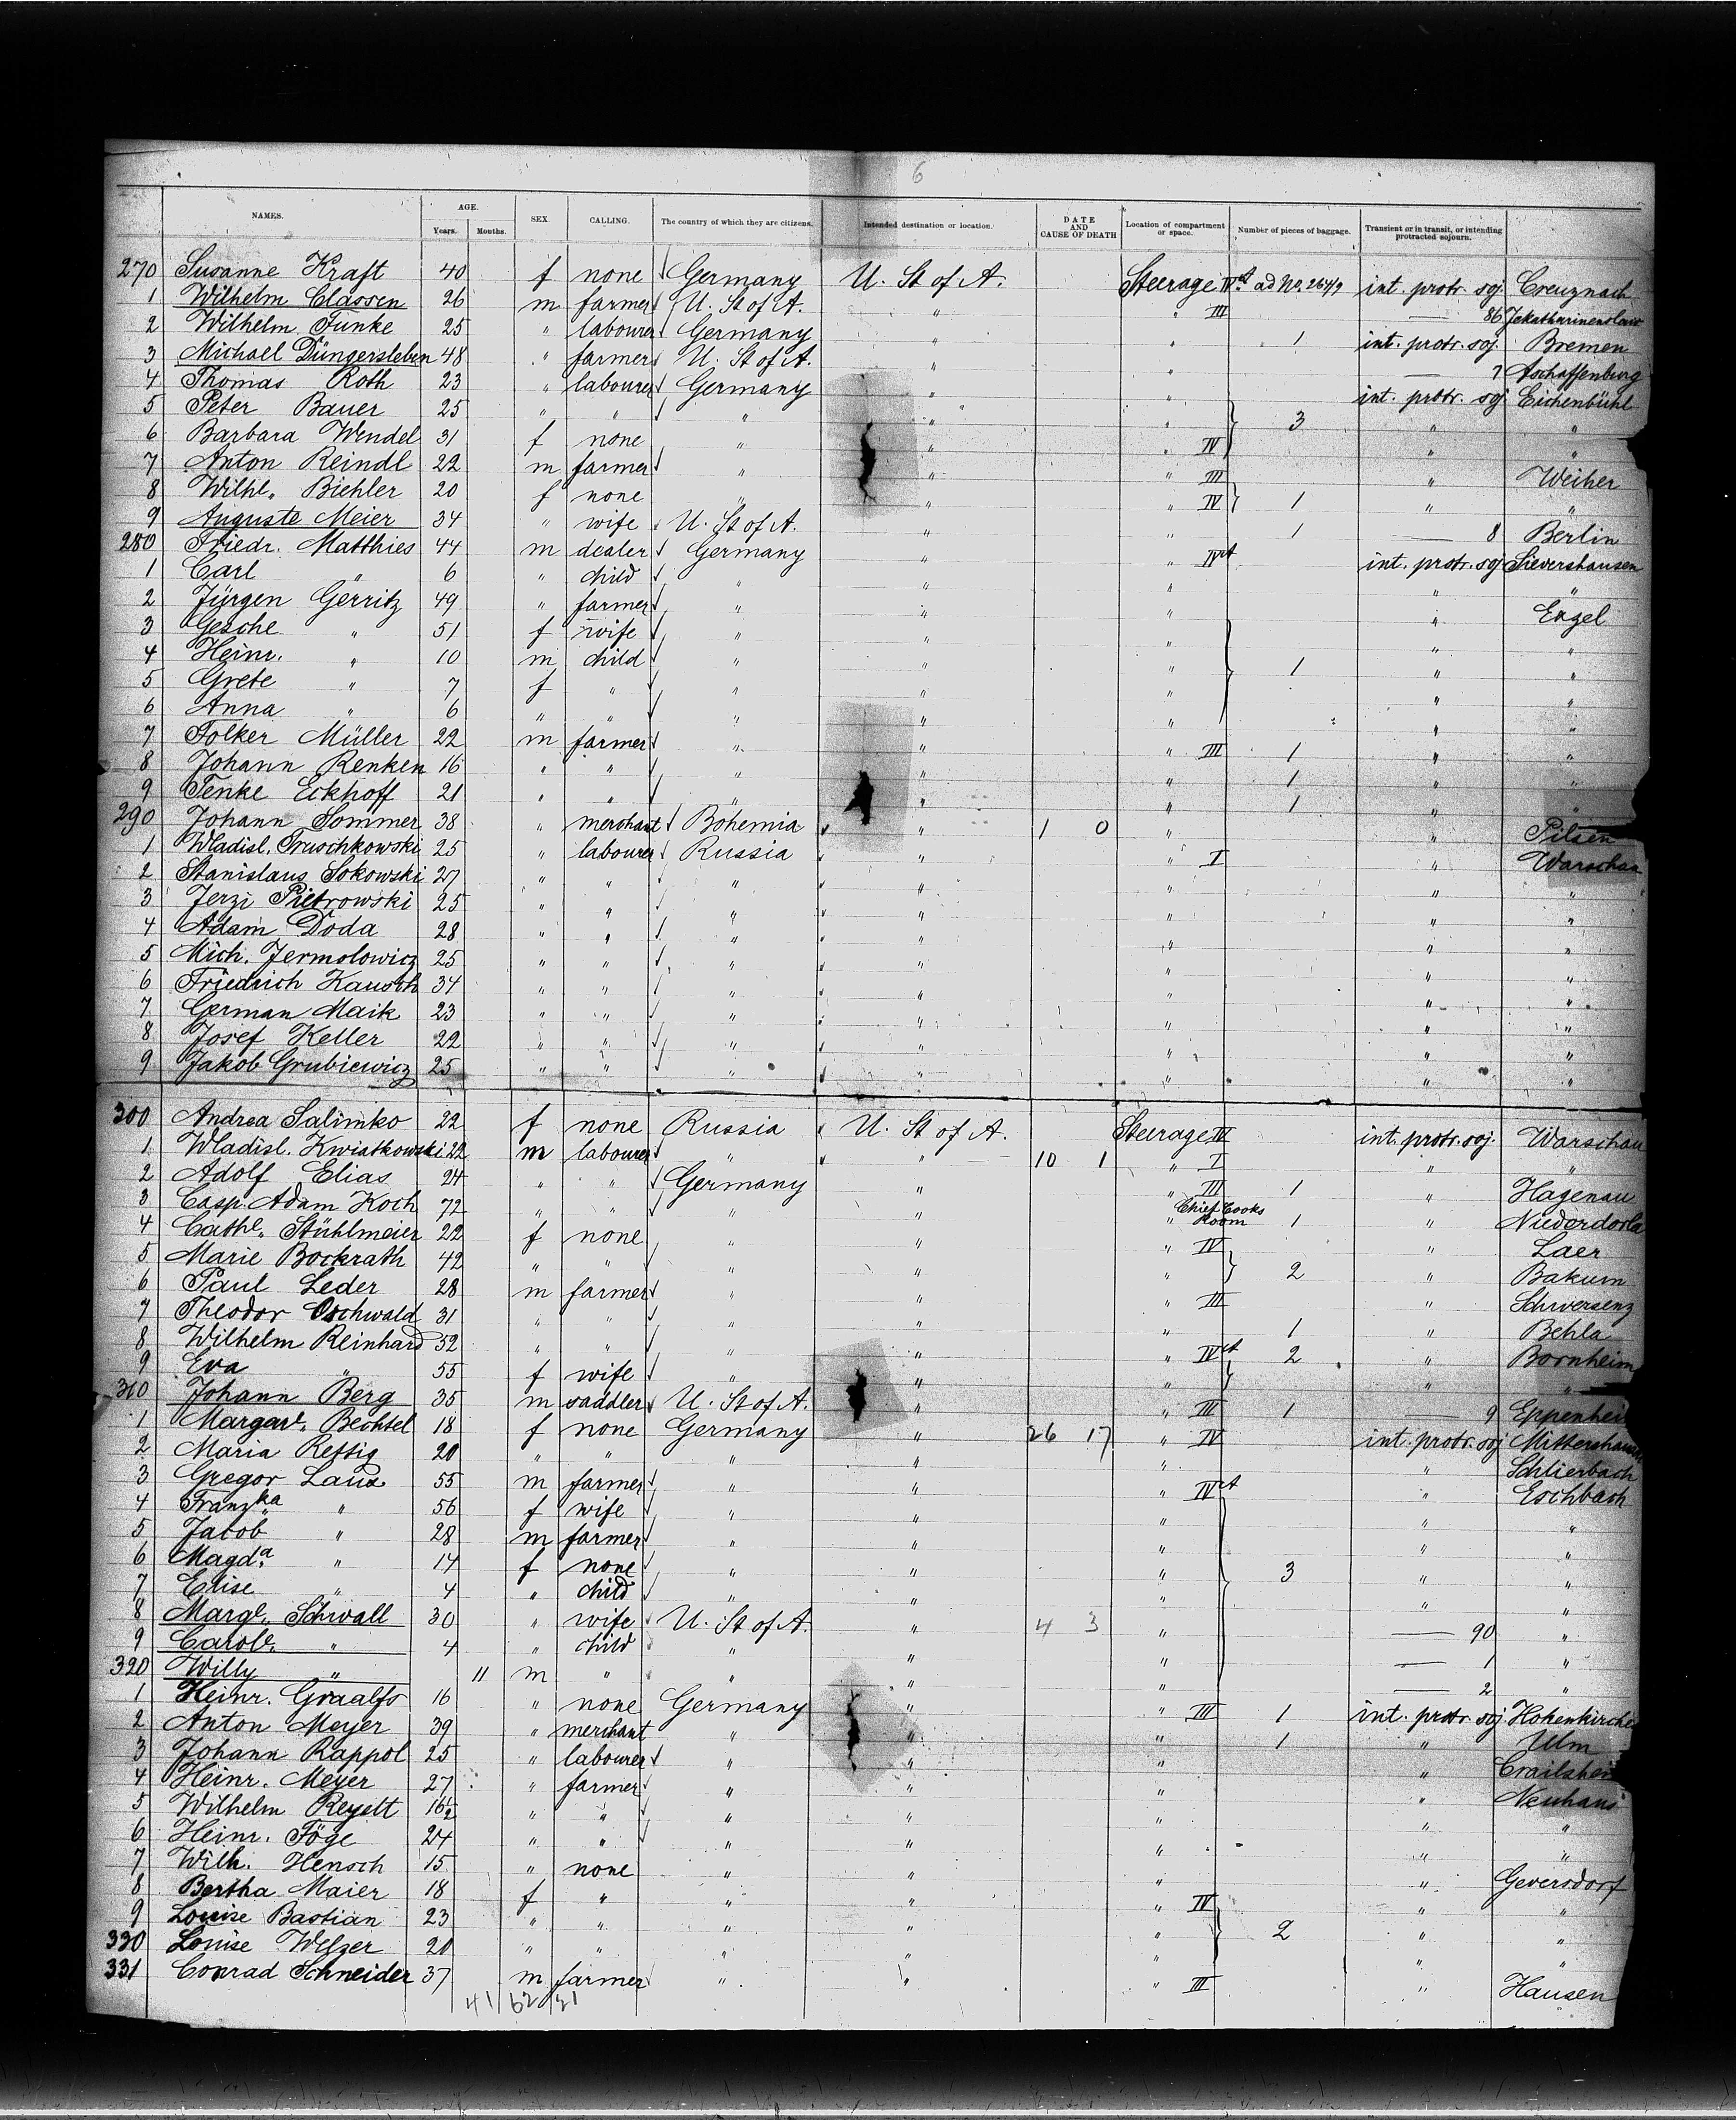 6
NAMES. AGE. Years. Months. SEX. CALLING. The country of which they are citizens. Intended destination or location. DATE AND CAUSE OF DEATH Location of compartment or space. Number of pieces of baggage. Transient or in transit, or intending protracted sojourn.
270 Susanne Kraft 40 f none Germany U. St of A. Steerage IV ad No. 264/9 int. protr. soj. Creuznach
1 Wilhelm Classen 26 m farmer U. St of A. " " III — 86 Jekatharinenslaw
2 Wilhelm Funke 25 " labourer Germany " " 1 int. protr. soj. Bremen
3 Michael Düngersleben 48 " farmer U. St of A. " " — 7 Aschaffenburg
4 Thomas Roth 23 " labourer Germany " " int. protr. soj. Eichenbühl
5 Peter Bauer 25 " " " " " 3 " "
6 Barbara Wendel 31 f none " " " IV " "
7 Anton Reindl 22 m farmer " " " III " Weiher
8 Wilhl. Biehler 20 f none " " " IV 1 " "
9 Auguste Meier 34 " wife U. St of A. " " 1 — 8 Berlin
280 Friedr. Matthies 44 m dealer Germany " " IV int. protr. soj. Sievershausen
1 Carl " 6 " child " " " " "
2 Jürgen Gerritz 49 " farmer " " " " Exgel
3 Gesche " 51 f wife " " " " "
4 Heinr. " 10 m child " " " 1 " "
5 Grete " 7 f " " " " " "
6 Anna " 6 " " " " " " "
7 Folker Müller 22 m farmer " " " III 1 " "
8 Johann Renken 16 " " " " " 1 " "
9 Tenke Eckhoff 21 " " " " " 1 " "
290 Johann Sommer 38 " merchant Bohemia " 1 0 " " Pilsen
1 Wladisl. Truschkowski 25 " labourer Russia " " I " Warschau
2 Stanislaus Sokowski 27 " " " " " " "
3 Jerzi Pietrowski 25 " " " " " " "
4 Adam Doda 28 " " " " " " "
5 Mich. Jermolowicz 25 " " " " " " "
6 Friedrich Kausch 34 " " " " " " "
7 German Maik 23 " " " " " " "
8 Josef Keller 22 " " " " " " "
9 Jakob Grubiewicz 25 " " " " " " "
300 Andrea Salimko 22 f none Russia U. St of A. Steerage IV int. protr. soj. Warschau
1 Wladisl. Kwiatkowski 22 m labourer " " 10 1 " I " "
2 Adolf Elias 24 " " Germany " " III 1 " Hagenau
3 Casp. Adam Koch 72 " " " " " Chief Cooks Room 1 " Niederdorla
4 Cathe. Stühlmeier 22 f none " " " IV " Laer
5 Marie Bockrath 42 " " " " " 2 " Bakum
6 Paul Leder 28 m farmer " " " III " Schwersenz
7 Theodor Oschwald 31 " " " " " 1 " Behla
8 Wilhelm Reinhard 52 " " " " " IV 2 " Bornheim
9 Eva " 55 f wife " " " " "
310 Johann Berg 35 m saddler U. St of A. " " III 1 — 9 Eppenhei
1 Margar. Bechtel 18 f none Germany " 26 17 " IV int. protr. soj. Mittershausen
2 Maria Rettig 20 " " " " " " Schlierbach
3 Gregor Laux 55 m farmer " " " IV " Eschbach
4 Franzka " 56 f wife " " " " "
5 Jacob " 28 m farmer " " " " "
6 Magda " 17 f none " " " 3 " "
7 Elise " 4 " child " " " " "
8 Marge. Schwall 30 " wife U. St of A. " 4 3 " — 90 "
9 Carole. " 4 " child " " " — 1 "
320 Willy " 11 m " " " " — 2 "
1 Heinr. Graalfs 16 " none Germany " " III 1 int. protr. soj. Hohenkirche
2 Anton Meyer 39 " merchant " " " 1 " Ulm
3 Johann Rappol 25 " labourer " " " " Crailshei
4 Heinr. Meyer 27 " farmer " " " " Neuhaus
5 Wilhelm Reyett 16½ " " " " " " "
6 Heinr. Föge 24 " " " " " " "
7 Wilh. Hensch 15 " none " " " " Geversdorf
8 Bertha Maier 18 f " " " " IV " "
9 Louise Bastian 23 " " " " " 2 " "
330 Louise Welzer 20 " " " " " " "
331 Conrad Schneider 37 m farmer " " " III " Hausen
41 62 21